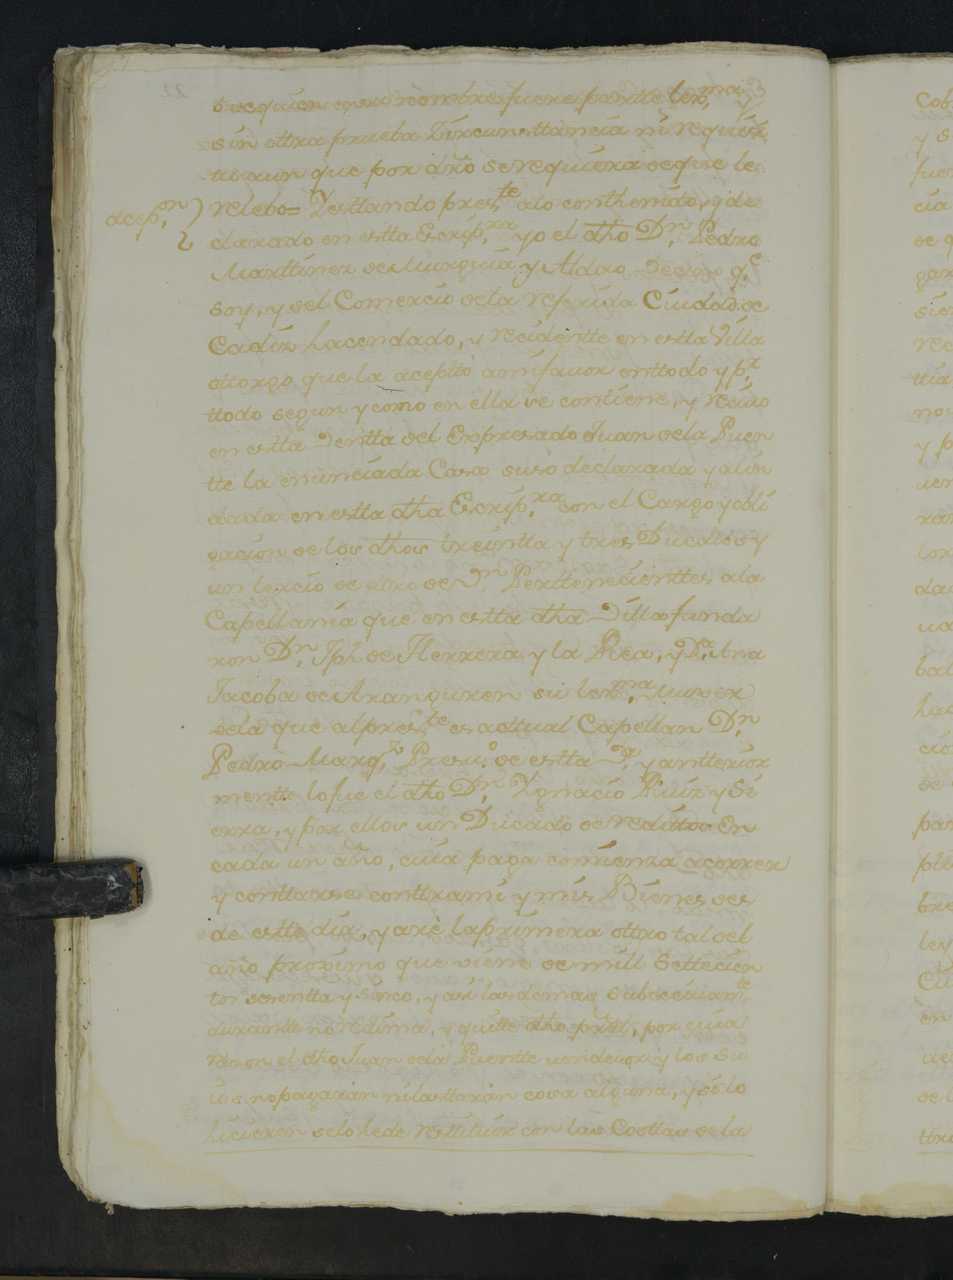 de quien en mi nombre fuere parte lex.ma y
sin ottra prueba Zircunsttancia ni requisi
aunque por dro se requiera de que le
acep.on relebo= Y esttando pres.te a lo conthenido, y de
clarado en estta Escrip.ra yo el dho D.n Pedro
Marttinez de Murguia y Aldao q.e
soy, y del Comercio de la referida Ciudad de
Cadiz hacendado, y recidentte en estta Villa
ottorgo que la aceptto a mi favor en ttodo y p.r
ttodo segun y como en ella se contiene, y recivo
en estta Ventta del Expresado Juan de la Puen
tte la enunciada Casa suso declarada y alin
dada en estta dha Escrip.ra con el Cargo y obli
gacion de los dhos treyntta y tres Ducados y
un tercio de otro de Pertenecienttes a la
Capellania que en estta dha Villa funda
ron D.n Jph de Herrera y la Rea, y D.a Ana
Jacoba de Aranguren su lex.ma Muxer
de la que al pres.te es acttual Capellan D.n
Pedro Marq.z Presv.o de estta V.a y antterior
mentte lo fue el dho D.n Ygnacio Ruiz y Si
erra, y por ellos un Ducado de redittos En
cada un año, cuia paga comienza a correr
y conttarse conttra mi y mis Bienes des
de estte dia, y arè la primera ottro tal del
año proximo que viene de mill Settecien
tos sesentta y sinco, y asi las demas subcecivam.te
durantte no redima, y quitte dho prãl, por cuia
razon el dho Juan de la Puentte vendedor y los su
ios no pagarán ni lasttarán cosa alguna, y si lo
hicieren se lo he de resttituir con las Costtas de la